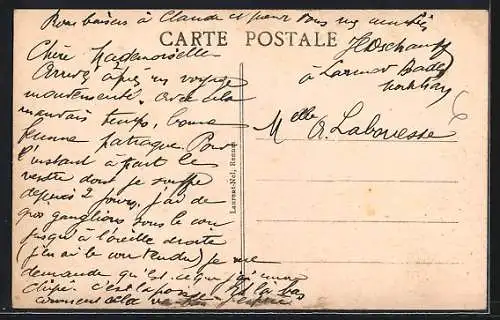 Bons baisers à Claude et pour vous nos amitiés
CARTE POSTALE
Chère Mademoiselle
Arrivée après un voyage
mouvementé. Avec cela
mauvais temps, bonne
femme patraque. Pour
l'instant à part le
ventre dont je souffre
depuis 2 jours, j'ai de
gros ganglions sous le cou
jusqu'à l'oreille droite
(j'en ai le cou tendu) je me
demande qu'est-ce que j'ai
c'est la
comment cela va
à Larmor Baden
Morbihan
Melle A. Labouesse
Laurent-Nel, Rennes